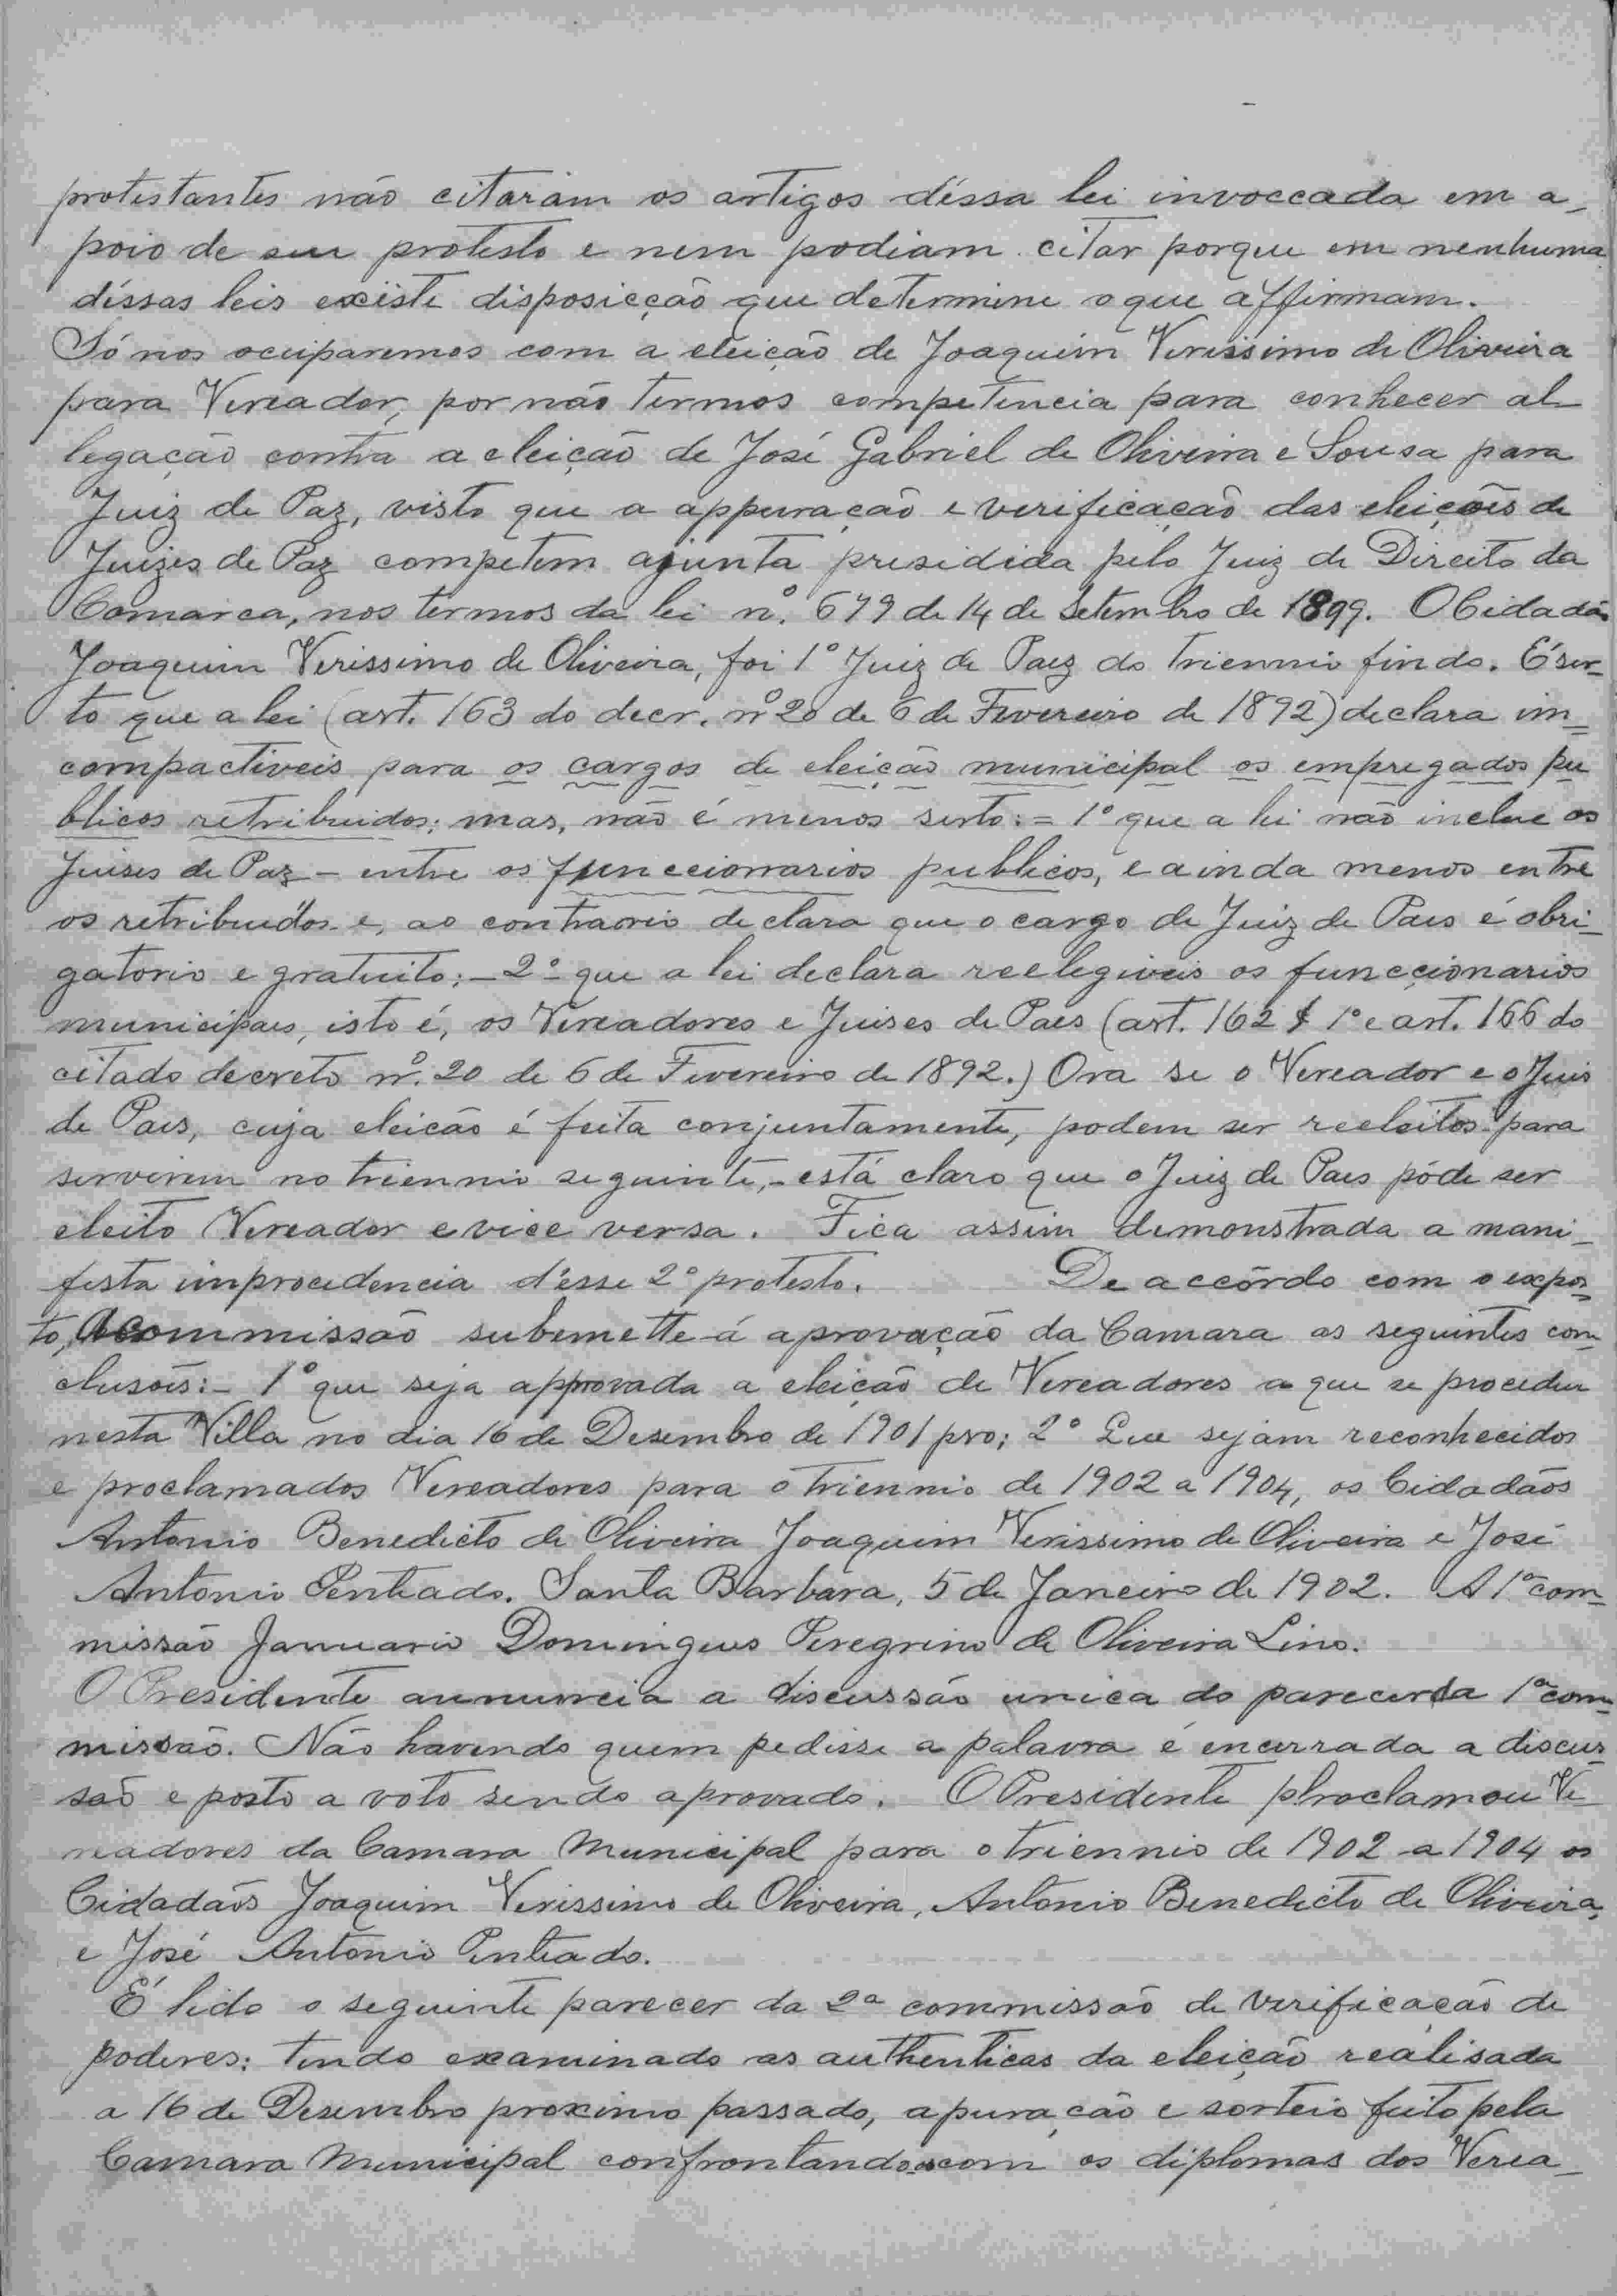 protestantes não citaram os artigos déssa lei invoccada em a_
poio de seu protesto e nem podiam citar porque em nenhuma
déssas leis existe disposicção que determine o que affirmam.
Só nos ocuiparemos com a eleição de Joaquim Verissimo de Oliveira
para Vereador, por não termos competencia para conhecer al_
legação contra a eleição de José Gabriel de Oliveira e Sousa para
Juiz de Paz, visto que a appuração e verificação das eleições de
Juizes de Paz competem ajunta presidida pelo Juiz de Direito da
Comarca, nos termos da lei nº. 679 de 14 de Setembro de 1899. O Cidadão
Joaquim Verissimo de Oliveira, foi 1º Juiz de Paz do triennio findo. É ser_
to que a lei (art. 163 do decr. nº 20 de 6 de Fevereiro de 1892) declara im=
compactiveis para os cargos de eleição municipal os empregados pu
blicos retribuidos; mas, não é menos serto: = 1º que a lei não inclue os
Juises de Paz - entre os funccionarios publicos, e ainda menos entre
os retribuidos e, ao contraorio declara que o cargo de Juiz de Pais é obri_
gatorio e gratuito; - 2º - que a lei declara reelegiveis os funccionarios
municipaes, isto é, os Vereadores e Juises de Paes (art. 162 § 1º e art. 166 do
citado decreto nº. 20 de 6 de Fevereiro de 1892.) Ora se o Vereador e o Juis
de Pais, cuja eleicão é feita conjuntamente, podem ser reeleitos para
servirem no triennio seguinte, - está claro que o Juiz de Pais póde ser
eleito Vereador e vice versa. Fica assim demonstrada a mani_
festa improcedencia d'ésse 2º protesto. De accôrdo com o expos_
to, A commissão submette á aprovação da Camara as seguintes con_
clusões: - 1º que seja approvada a eleição de Vereadores a que se procedeu
nesta Villa no dia 16 de Desembro de 1901 pro; 2º Que sejam reconhecidos
e proclamados Vereadores para o triennio de 1902 a 1904, os Cidadãos
Antonio Benedicto de Oliveira Joaquim Verissimo de Oliveira e José
Antonio Penteado. Santa Barbara, 5 de Janeiro de 1902. A 1ª com_
missão Januario Domingues Peregrino de Oliveira Lino.
O Presidente annuncia a discussão unica do parecer da 1ª com_
missão. Não havendo quem pedisse a palavra é encerrada a discus_
são e posto a voto sendo aprovado. O Presidente phroclamou Ve_
readores da Camara Municipal para o triennio de 1902 a 1904 os
Cidadãos Joaquim Verissimo de Oliveira, Antonio Benedicto de Oliveira,
e José Antonio Penteado.
É lido o seguinte parecer da 2ª commissão de verificação de
poderes: tendo examinado as authenticas da eleição realisada
a 16 de Desembro proximo passado, apuração e sorteio feito pela
Camara Municipal confrontando-os com os diplomas dos Verea_